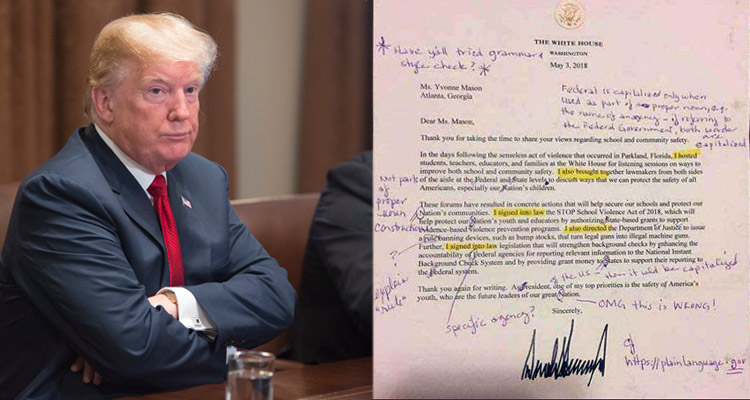 THE WHITE HOUSE
WASHINGTON
May 3, 2018
* Have y'all tried grammar &
style check? *
Ms. Yvonne Mason
Atlanta, Georgia
Federal is capitalized only when
used as part of a proper noun, e.g.
the name of an agency - if referring to
the Federal Government, both words
are
capitalized
Dear Ms. Mason,
Thank you for taking the time to share your views regarding school and community safety.
In the days following the senseless act of violence that occurred in Parkland, Florida, I hosted
students, teachers, educators, and families at the White House for listening sessions on ways to
improve both school and community safety. I also brought together lawmakers from both sides
of the aisle at the Federal and State levels to discuss ways that we can protect the safety of all
Americans, especially our Nation's children.
Not part
of
proper
noun
construction
These forums have resulted in concrete actions that will help secure our schools and protect our
Nation's communities. I signed into law the STOP School Violence Act of 2018, which will
help protect our Nation's youth and educators by authorizing State-based grants to support
evidence-based violence prevention programs. I also directed the Department of Justice to issue
a rule banning devices, such as bump stocks, that turn legal guns into illegal machine guns.
Further, I signed into law legislation that will strengthen background checks by enhancing the
accountability of Federal agencies for reporting relevant information to the National Instant
Background Check System and by providing grant money to States to support their reporting to
the Federal system.
explain
"rule"
of the US - then it would be capitalized
Thank you again for writing. As President, one of my top priorities is the safety of America's
youth, who are the future leaders of our great Nation.
OMG this is WRONG!
specific agency?
Sincerely,
cf
https://plainlanguage.gov